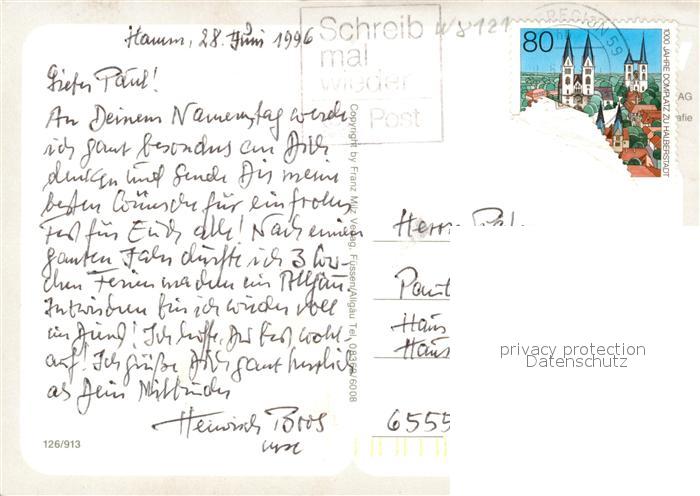 Hamm, 28. Juni 1996
Schreib
mal
wieder
Post
REGION 59
80
1000 JAHRE DOMPLATZ ZU HALBERSTADT
AG
Lieber Paul!
An Deinem Namenstag werde
ich ganz besonders an Dich
denken und sende Dir meine
besten Wünsche für ein frohes
Fest für Euch alle! Nach einem
ganzen Jahr durfte ich 3 Wo-
chen Ferien machen im Allgäu.
Inzwischen bin ich wieder voll
im Dienst! Ich hoffe, Dir geht wohl-
auf! Ich grüße Dich ganz herzlich
als Dein Mitbruder
Heinrich
Copyright by Franz Milz Verlag, Füssen/Allgäu Tel. 08362/6008
Herrn
Haus
6555
privacy protection
Datenschutz
126/913